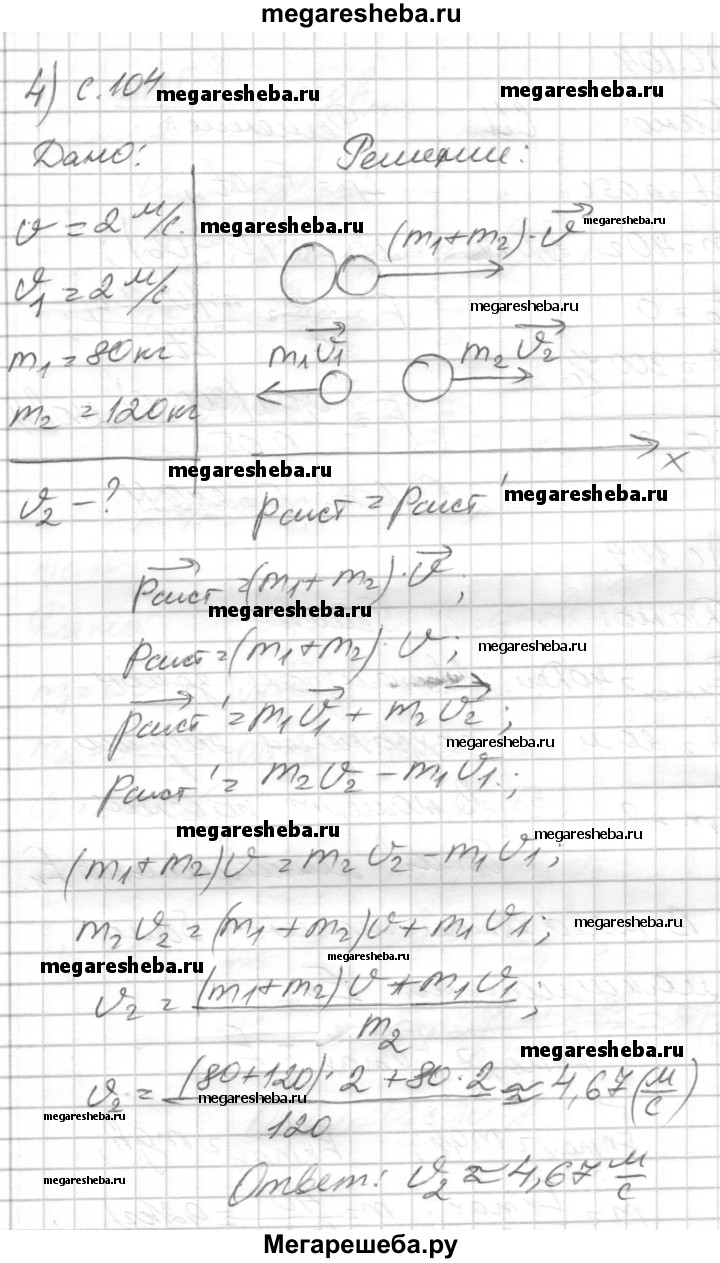 megaresheba.ru
4) с.104
megaresheba.ru megaresheba.ru
Дано: Решение:
v = 2 м/с. megaresheba.ru (m₁+m₂)·v⃗ megaresheba.ru
v₁ = 2 м/с
megaresheba.ru
m₁ = 80 кг m₁v⃗₁ m₂v⃗₂
m₂ = 120 кг
x
megaresheba.ru
v₂ - ? pсист = pсист' megaresheba.ru
p⃗сист = (m₁+m₂)·v⃗;
megaresheba.ru
pсист = (m₁+m₂)·v; megaresheba.ru
p⃗сист' = m₁v⃗₁ + m₂v⃗₂;
megaresheba.ru
pсист' = m₂v₂ - m₁v₁.;
megaresheba.ru megaresheba.ru
(m₁+m₂)v = m₂v₂ - m₁v₁;
m₂v₂ = (m₁+m₂)v + m₁v₁; megaresheba.ru
megaresheba.ru megaresheba.ru
v₂ = (m₁+m₂)v + m₁v₁ / m₂;
megaresheba.ru
v₂ = (80+120)·2 + 80·2 / 120 ≈ 4,67 (м/с)
megaresheba.ru megaresheba.ru
megaresheba.ru
Ответ: v₂ ≈ 4,67 м/с
Мегарешеба.ру